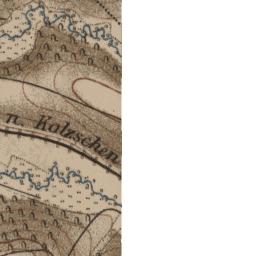 n. Kalzschen